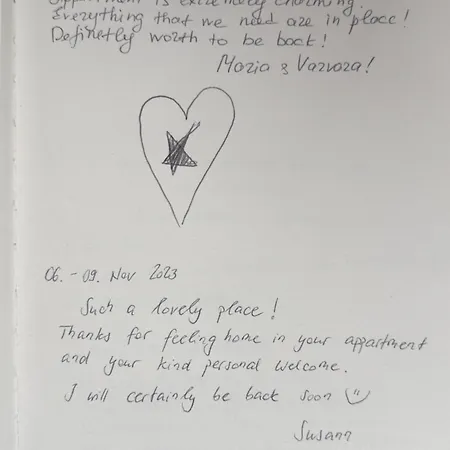 is extremely charming.
Everything that we need are in place!
Definetly worth to be back!
Maria & Varvara!
06. - 09. Nov 2023
Such a lovely place!
Thanks for feeling home in your appartment
and your kind personal welcome.
I will certainly be back soon
Susann